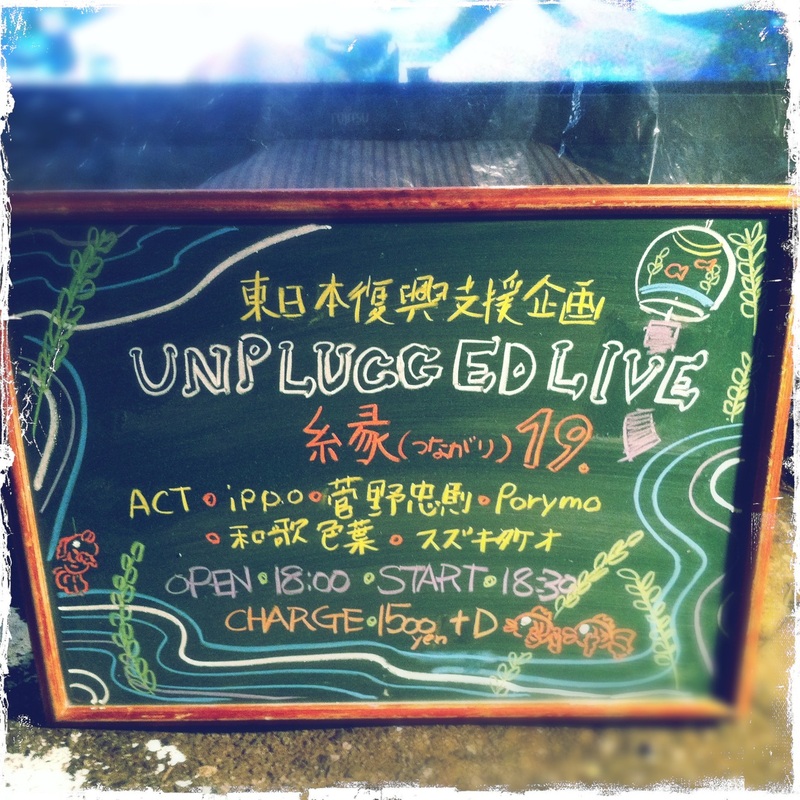 FUJITSU
東日本復興支援企画
UNPLUGGED LIVE
縁(つながり)19.
ACT・ippo・菅野忠則・Porymo
・和歌色葉・スズキタケオ
OPEN・18:00・START・18:30
CHARGE・1500yen+D